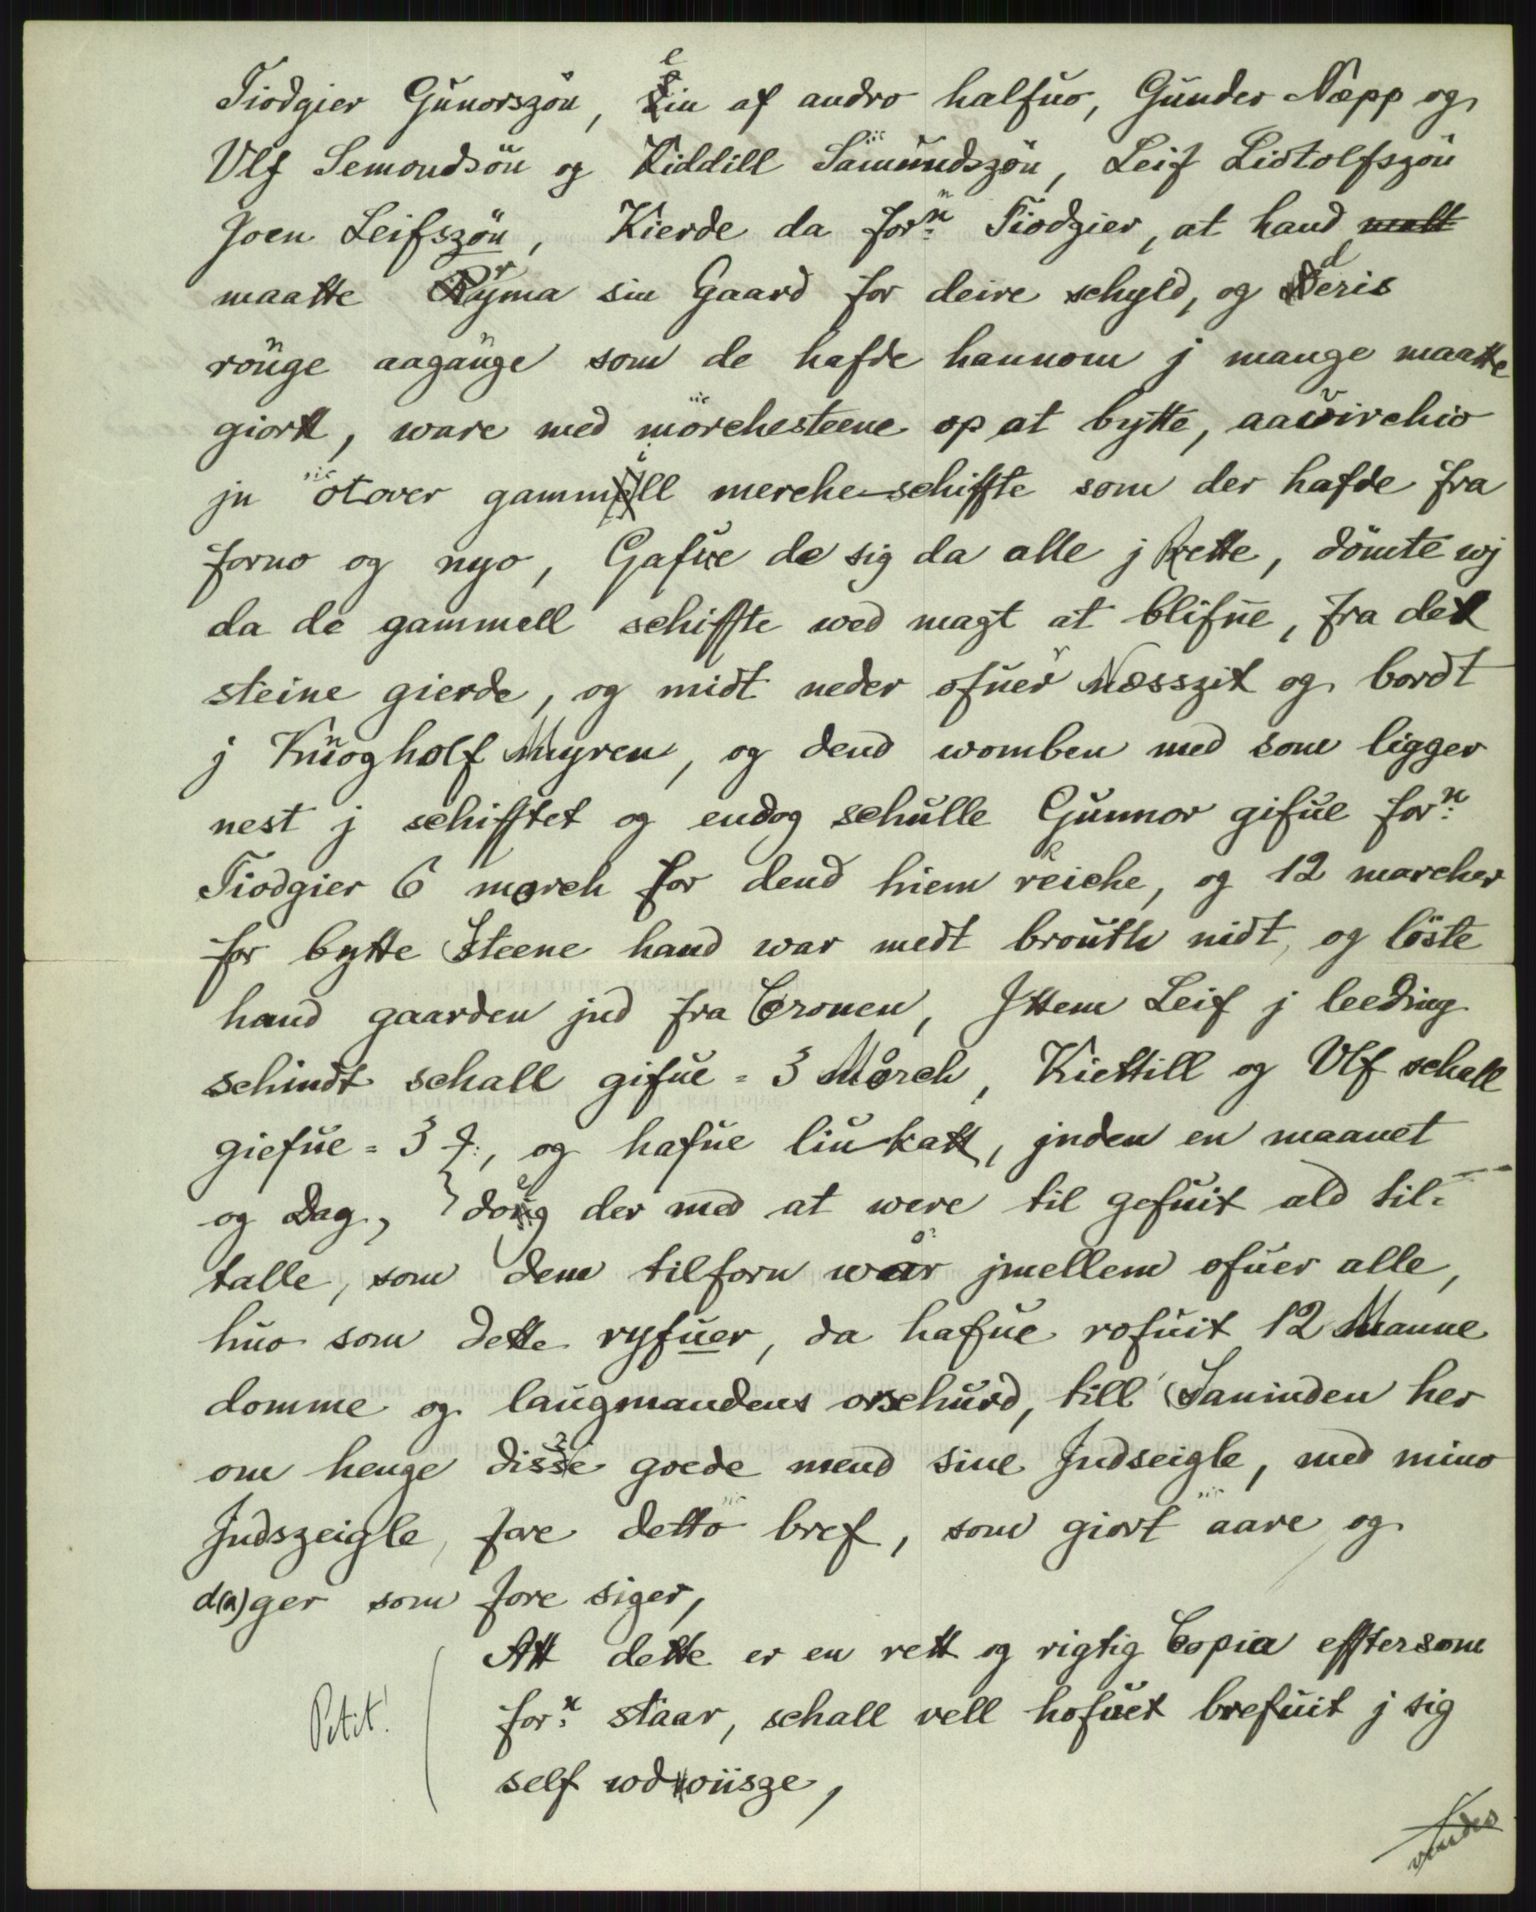 Tiodgier Gunorszön, ein af andro halfuo, Gunder Næpp og
Vlf Semondsön og Kiddill Sämundszön, Leif Liotolfszön
Joen Leifszön, Kierde da forn: Tiodgier, at hand
maatte Ryma sin Gaard for deire schyld, og deris
rönge aagange som de hafde hannom j mange maatte
giortt, ware med mörchesteene op at bytte, aavirchio
jn otover gammill merche-schiffte som der hafde fra
forno og nyo, Gafue de sig da alle j Rette, dömte wj
da de gammell schiffte wed magt at blifue, fra det
steine gierde, og midt neder ofuer Næsszit og bordt
j Knogholf Myren, og dend womben med som ligger
nest j schifftet og endog schulle Gunnor gifue forn:
Tiodgier 6 morch for dend hiem reiche, og 12 marcher
for bytte Steene hand war medt brouth nidt, og löste
hand gaarden jnd fra Cronen, Jttem Leif j leeding
schindt schall gifue = 3 Mörch, Kiettill og Vlf schall
giefue = 3 , og hafue liu katt, jnden en maanet
og Dag, der med at were til gefuit ald til=
talle, som dem tilforn war jmellem ofuer alle,
huo som dette ryfuer, da hafue rofuit 12 Manne
domme og laugmandens orschurd, till Saninden her
om henge disse goede mend sine Jndseigle, med mino
Jndszeigle, fore detto bref, som giort aare og
d(a)ger som fore siger,
Att dette er en rett og rigtig Copia efftersom
Petit! forn: staar, schall vell hofuet brefuit j sig
self wdwiisze,
vendes